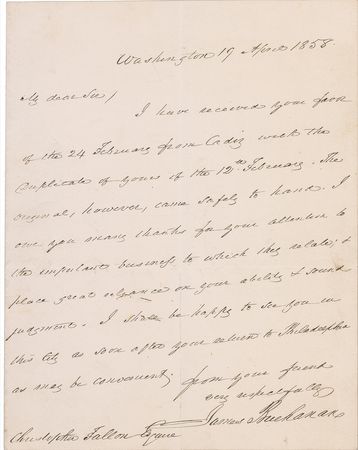 Washington 19 April 1858.
My dear Sir/
I have received your favor
of the 24 February from Cadiz with the
duplicate of yours of the 12th February. The
original, however, came safely to hand. I
owe you many thanks for your attention to
the important business to which they relate; &
place great reliance on your ability & sound
judgment. I shall be happy to see you in
this City as soon after your return to Philadelphia
as may be convenient;
from your friend
very respectfully
James Buchanan
Christopher Fallon Esquire